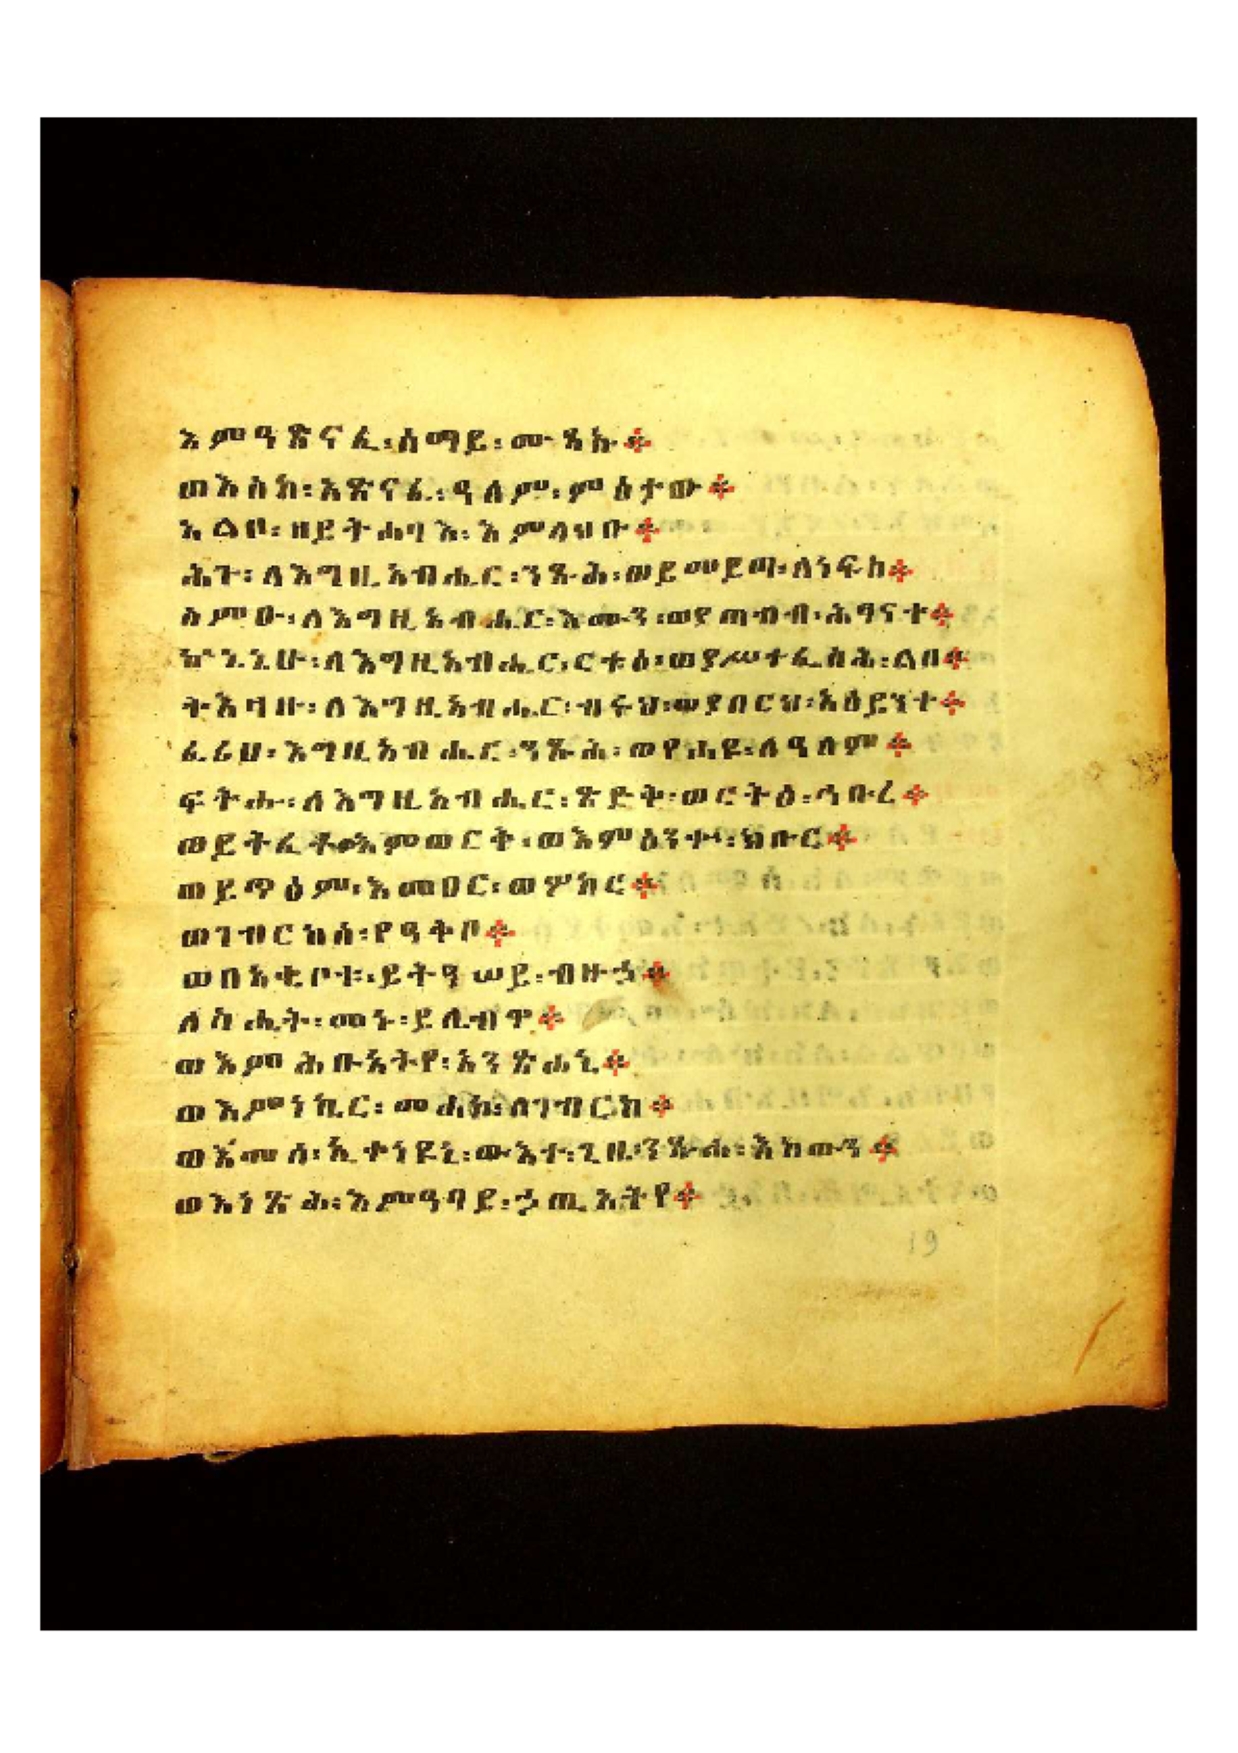 እምዓጽናፈ፡ሰማይ፡ሙጻኡ።
ወእስከ፡አጽናፈ፡ዓለም፡ምዕታው።
አልቦ፡ዘይትኀባእ፡እምላህቡ።
ሕጉ፡ለእግዚአብሔር፡ንጹሕ፡ወይመይጣ፡ለነፍስ።
ስምዑ፡ለእግዚአብሔር፡እሙን፡ወያጠብብ፡ሕፃናተ።
ኵነኔሁ፡ለእግዚአብሔር፡ርቱዕ፡ወያሥተፌስሕ፡ልበ።
ትእዛዙ፡ለእግዚአብሔር፡ብሩህ፡ወያበርህ፡አዕይንተ።
ፈሪሀ፡እግዚአብሔር፡ንጹሕ፡ወየሐዩ፡ለዓለም።
ፍትሑ፡ለእግዚአብሔር፡ጽድቅ፡ወርትዕ፡ኅቡረ።
ወይትፈቶ፡እምወርቅ፡ወእምዕንቍ፡ክቡር።
ወይጥዕም፡እመዐር፡ወሦከር።
ወገብርከሰ፡የዓቅቦ።
ወበአቂቦቱ፡ይትዓሠይ፡ብዙኃ።
ለስሒት፡መኑ፡ይሌብዋ።
ወእምኅቡአትየ፡አንጽሐኒ።
ወእምነኪር፡መሐክ፡ለገብርከ።
ወእመሰ፡ኢቀነዩኒ፡ውእተ፡ጊዜ፡ንጹሐ፡እከውን።
ወእነጽሕ፡እምዓባይ፡ኃጢአትየ።
19